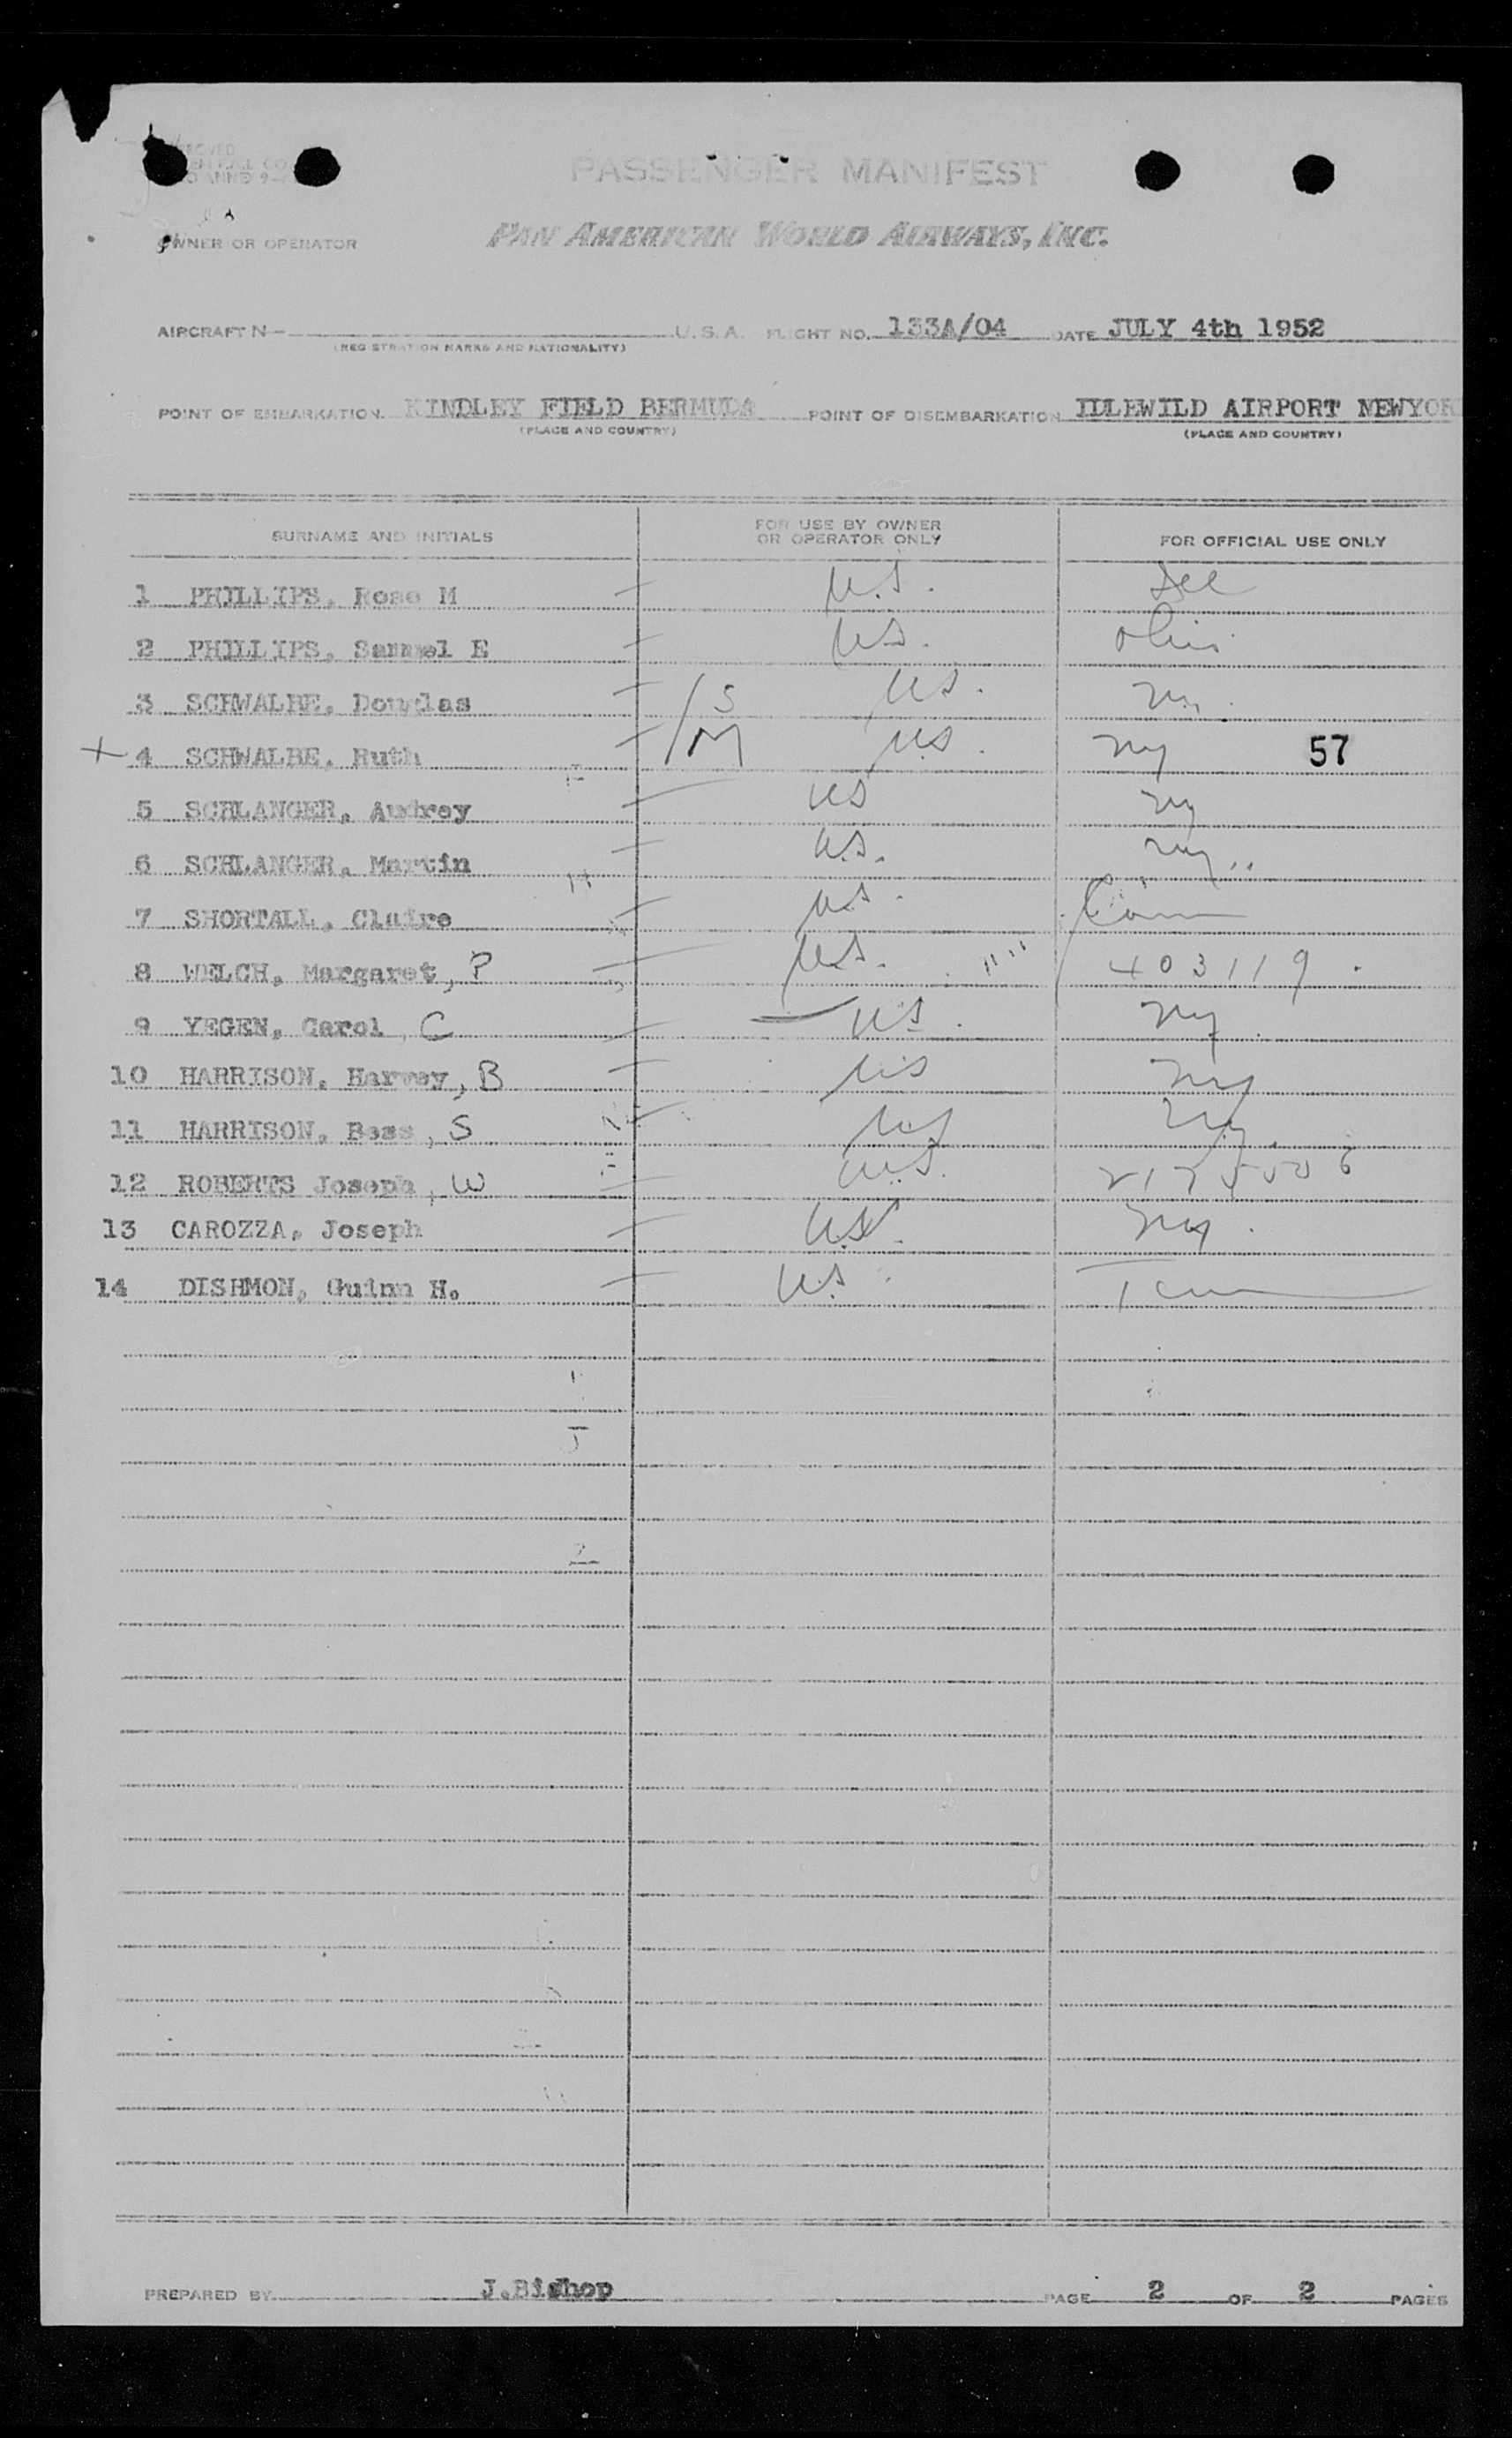 PASSENGER MANIFEST
OWNER OR OPERATOR PAN AMERICAN WORLD AIRWAYS, INC.
AIRCRAFT N- U.S.A. FLIGHT NO. 133A/04 DATE JULY 4th 1952
(REGISTRATION MARKS AND NATIONALITY)
POINT OF EMBARKATION KINDLEY FIELD BERMUDA POINT OF DISEMBARKATION IDLEWILD AIRPORT NEWYORK
(PLACE AND COUNTRY) (PLACE AND COUNTRY)
SURNAME AND INITIALS FOR USE BY OWNER OR OPERATOR ONLY FOR OFFICIAL USE ONLY
1 PHILLIPS, Rose M U.S.
2 PHILLIPS, Samuel E U.S. Ohio
3 SCHWALBE, Douglas S U.S.
4 SCHWALBE, Ruth M U.S. NY 57
5 SCHLANGER, Audrey US NY
6 SCHLANGER, Martin U.S. NY
7 SHORTALL, Claire U.S. Conn
8 WELCH, Margaret, P U.S. 403119
9 YEGEN, Carol, C US. NY
10 HARRISON, Harvey, B US NY
11 HARRISON, Bess, S US NY
12 ROBERTS Joseph, W U.S.
13 CAROZZA, Joseph U.S. NY
14 DISHMON, Guinn H. U.S. Tenn
PREPARED BY J.Bishop PAGE 2 OF 2 PAGES